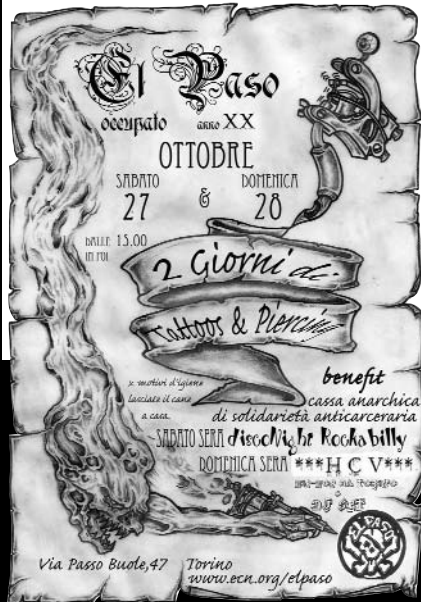 El Paso
occupato anno XX
OTTOBRE
SABATO DOMENICA
27 & 28
DALLE 15.00
IN POI
2 Giorni di
Tattoos & Piercing
x motivi d'igiene
lasciate il cane
a casa
benefit
cassa anarchica
di solidarietà anticarceraria
SABATO SERA discoNight Rockabilly
DOMENICA SERA ***H C V***
EL PASO
Via Passo Buole,47 Torino
www.ecn.org/elpaso